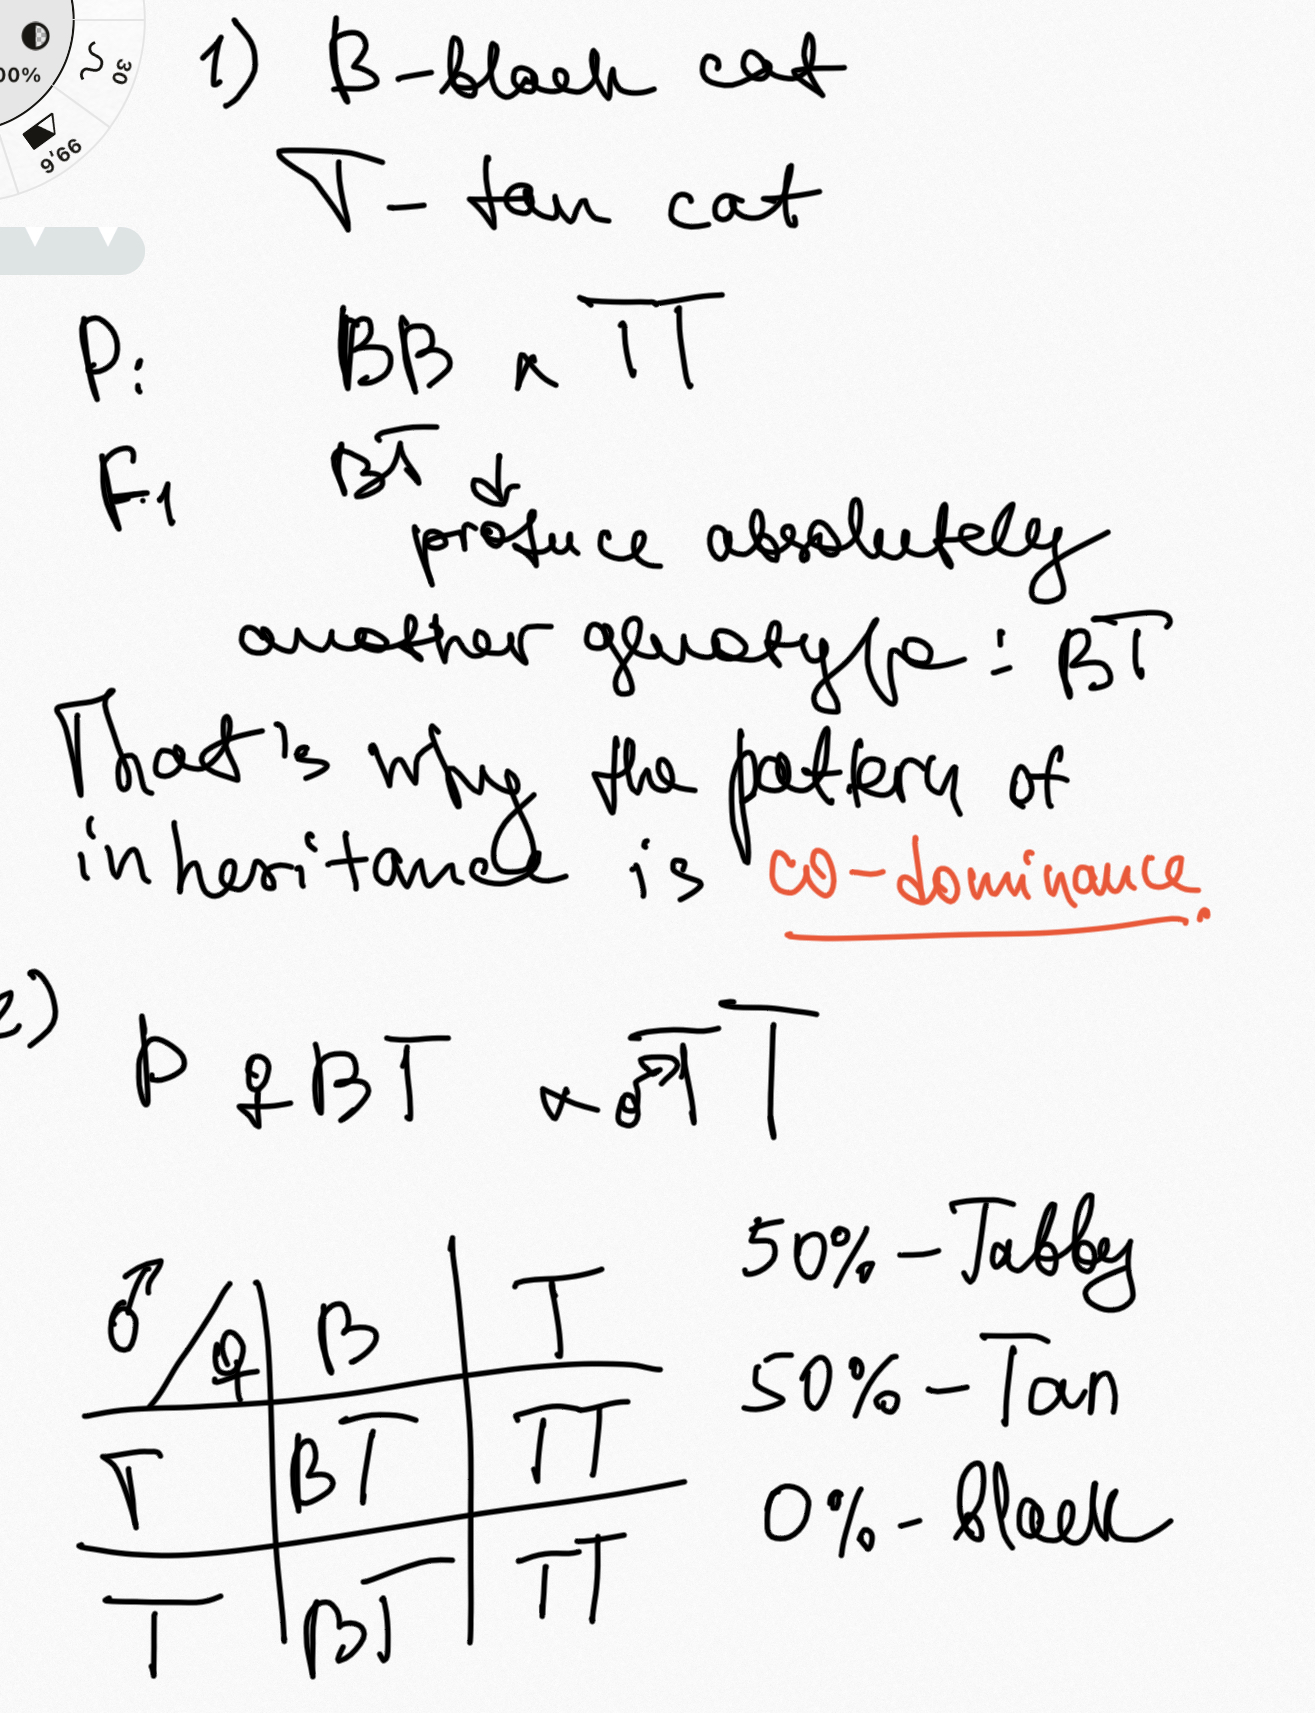 00%
30
99,6
1) B - black cat
T - tan cat
P: BB x TT
F1 BT ↓
produce absolutely
another genotype: BT
That's why the pattern of
inheritance is co-dominance.
2)
P ♀ BT x ♂ TT
♂/♀ B T
T BT TT
T BT TT
50% - Tabby
50% - Tan
0% - Black